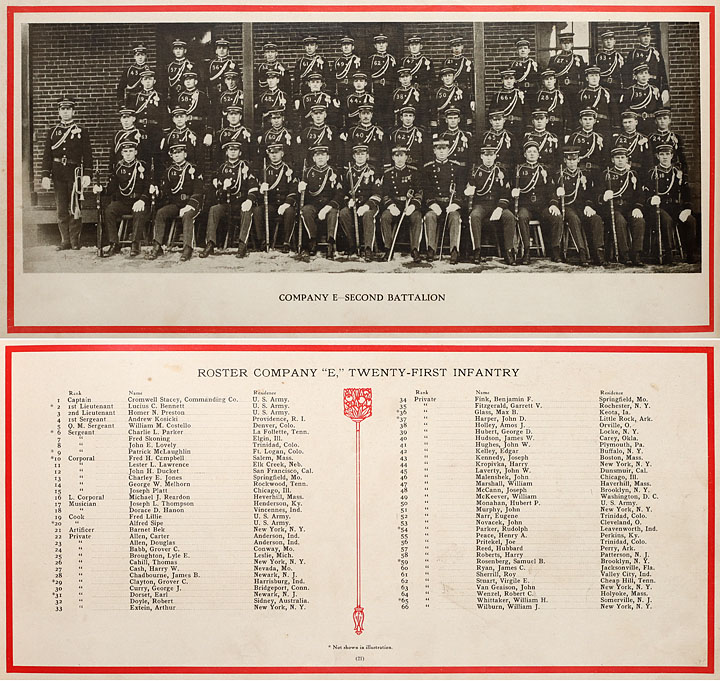 COMPANY E—SECOND BATTALION
ROSTER COMPANY "E," TWENTY-FIRST INFANTRY
Rank Name Residence
1 Captain Cromwell Stacey, Commanding Co. U. S. Army.
* 2 1st Lieutenant Lucius C. Bennett U. S. Army.
3 2nd Lieutenant Homer N. Preston U. S. Army.
4 1st Sergeant Andrew Kosicki Providence, R. I.
5 Q. M. Sergeant William M. Costello Denver, Col.
6 Sergeant Charlie L. Parker La Follette, Tenn.
7 " Fred Skoning Elgin, Ill.
8 " John E. Lovely Trinidad, Colo.
* 9 " Patrick McLaughlin Ft. Logan, Col.
*10 Corporal Fred H. Campbell Salem, Mass.
11 " Lester L. Lawrence Elk Creek, Neb.
12 " John H. Ducket San Francisco, Cal.
13 " Charley E. Jones Springfield, Mo.
14 " George W. Melhorn Rockwood, Tenn.
15 " Joseph Platt Chicago, Ill.
16 L. Corporal Michael J. Reardon Heverhill, Mass.
17 Musician Joseph L. Thompson Henderson, Ky.
18 " Dorace D. Hanon Vincennes, Ind.
19 Cook Fred Lillie U. S. Army.
*20 " Alfred Sipe U. S. Army.
21 Artificer Barnet Bek New York, N. Y.
22 Private Allen, Carter Anderson, Ind.
23 " Allen, Douglas Anderson, Ind.
24 " Babb, Grover C. Conway, Mo.
25 " Broughton, Lyle E. Leslie, Mich.
26 " Cahill, Thomas New York, N. Y.
27 " Cash, Harry W. Nevada, Mo.
28 " Chadbourne, James B. Newark, N. J.
*29 " Clayton, Grover C. Harrisburg, Ind.
30 " Curry, George J. Bridgeport, Conn.
*31 " Dorset, Earl Newark, N. J.
32 " Doyle, Robert Sidney, Australia.
33 " Extein, Arthur New York, N. Y.
Rank Name Residence
34 Private Fink, Benjamin F. Springfield, Mo.
35 " Fitzgerald, Garrett V. Rochester, N. Y.
*36 " Glass, Max B. Keota, Ia.
*37 " Harper, John D. Little Rock, Ark.
38 " Holley, Amos J. Orville, O.
39 " Hubert, George D. Locke, N. Y.
40 " Hudson, James W. Carey, Okla.
41 " Hughes, John W. Plymouth, Pa.
42 " Kelley, Edgar Buffalo, N. Y.
43 " Kennedy, Joseph Boston, Mass.
44 " Kropivka, Harry New York, N. Y.
45 " Laverty, John W. Dunsmuir, Cal.
46 " Malenshek, John Chicago, Ill.
47 " Marshall, William Haverhill, Mass.
48 " McCann, Joseph Brooklyn, N. Y.
49 " McKeever, William Washington, D. C.
50 " Monahan, Hubert P. U. S. Army.
51 " Murphy, John New York, N. Y.
52 " Narr, Eugene Trinidad, Colo.
53 " Novacek, John Cleveland, O.
*54 " Parker, Rudolph Leavenworth, Ind.
55 " Peace, Henry A. Perkins, Ky.
56 " Pritekel, Joe Trinidad, Colo.
57 " Reed, Hubbard Perry, Ark.
58 " Roberts, Harry Patterson, N. J.
*59 " Rosenberg, Samuel B. Brooklyn, N. Y.
60 " Ryan, James C. Jacksonville, Fla.
61 " Sherrill, Roy Valley City, Ind.
62 " Stuart, Virgile E. Cheap Hill, Tenn.
63 " Van Geaison, John New York, N. Y.
64 " Wenzel, Robert C. Holyoke, Mass.
*65 " Whittaker, William H. Somerville, N. J.
66 " Wilburn, William J. New York, N. Y.
* Not shown in illustration.
(21)